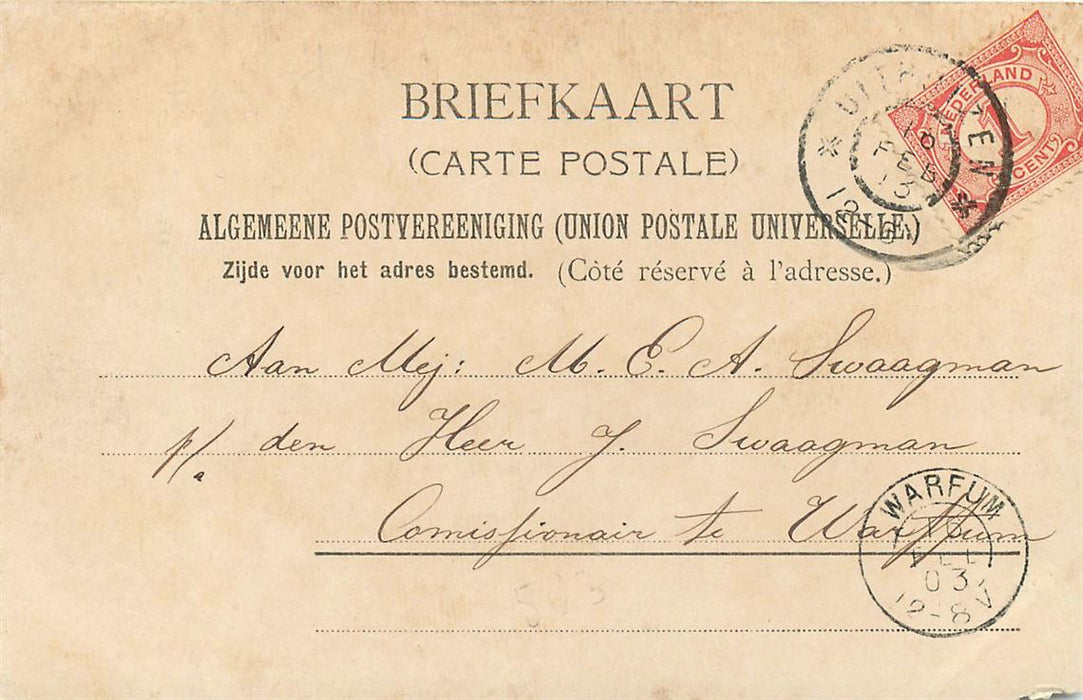 BRIEFKAART
(CARTE POSTALE)
ALGEMEENE POSTVEREENIGING (UNION POSTALE UNIVERSELLE.)
Zijde voor het adres bestemd. (Côté réservé à l'adresse.)
NEDERLAND
1
CENT
FEB
Aan Mej: M. E. A. Swaagman
p/a den Heer J. Swaagman
Comissionair te Warffum
WARFUM
16
FEB
03
12-8V